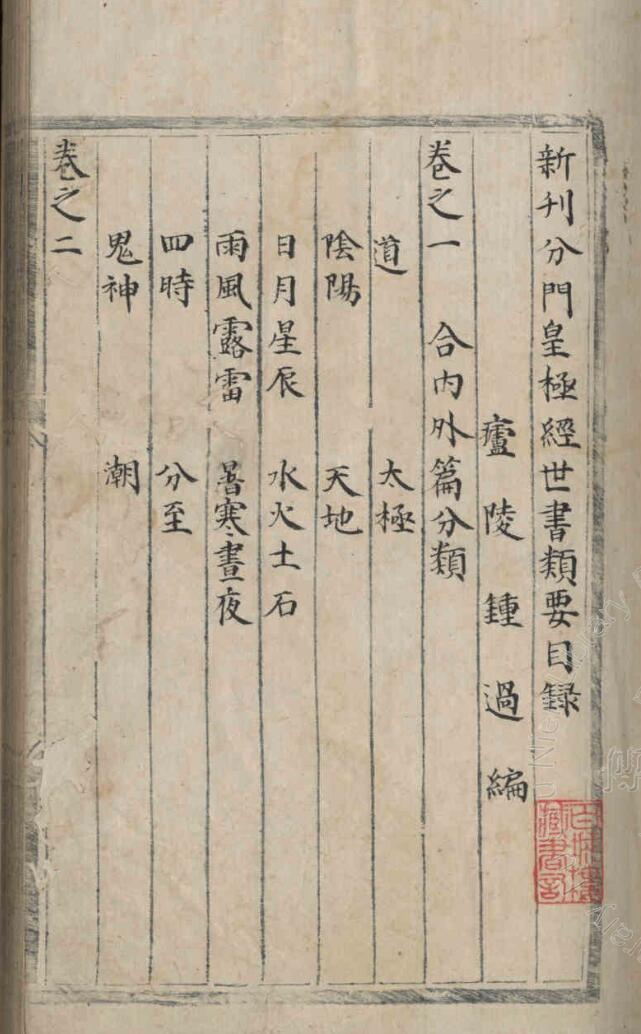 新刊分門皇極經世書類要目録
廬陵鍾過編
卷之一 合内外篇分類
道 太極
陰陽 天地
日月星辰 水火土石
雨風露雷 暑寒晝夜
四時 分至
鬼神 潮
卷之二